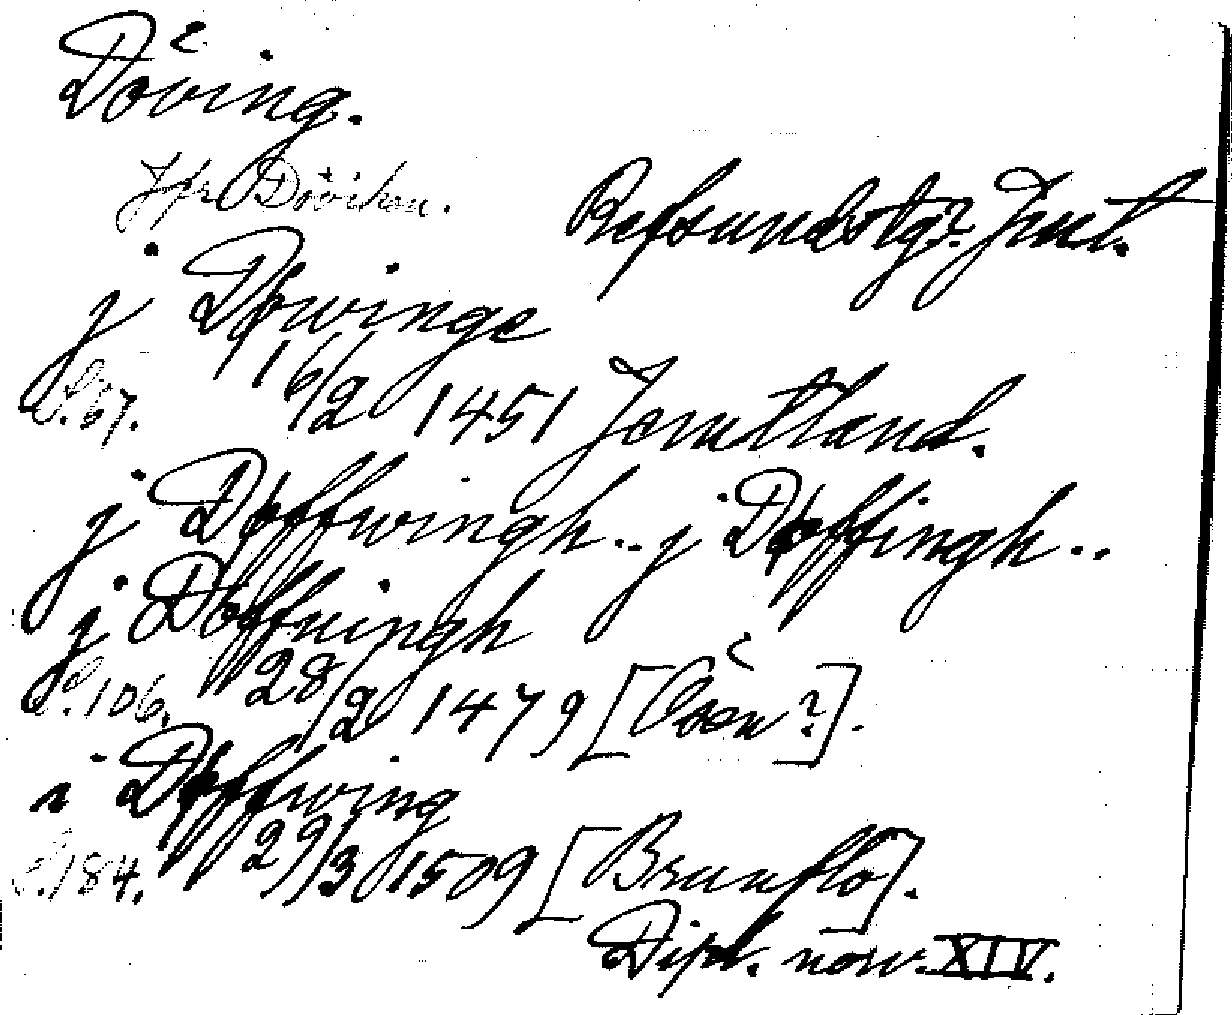 Döving.
Jfr Döviken.
Refsundstg? Jmt.
j Døwinge
S. 67. 16/2 1451 Jemtland.
j Døffwingh.. j Døffingh..
j Døffuingh
S. 106. 28/2 1479 [Åsen?].
i Døffwing
S. 184. 29/3 1509 [Brunflo].
Dipl. norv. XIV.